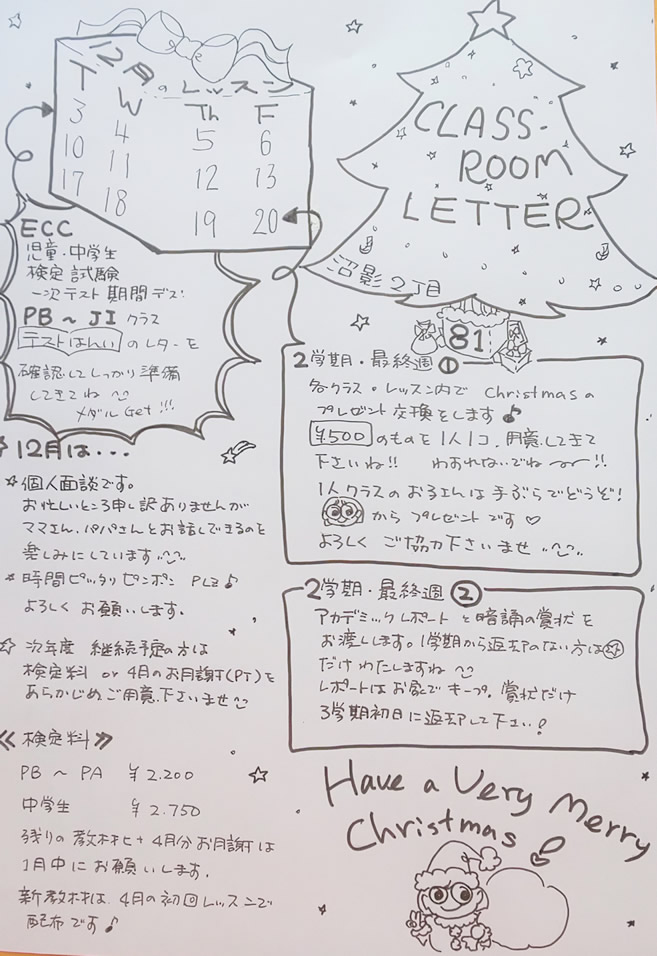 12月のレッスン
T W Th F
3 4 5 6
10 11 12 13
17 18 19 20
CLASS-
ROOM
LETTER
沼影2丁目
81
ECC
児童・中学生
検定試験
一次テスト期間デス!
PB~JIクラス
テストはんいのレターを
確認してしっかり準備
してきてね
メダルGet!!!
12月は・・・
☆個人面談です。
お忙しいところ申し訳ありませんが
ママさん、パパさんとお話しできるのを
楽しみにしています
*時間ピッタリピンポン PLZ♪
よろしくお願いします。
☆次年度 継続予定の方は
検定料 or 4月のお月謝(PT)を
あらかじめご用意下さいませ
≪検定料≫
PB ~ PA ¥2.200
中学生 ¥2.750
残りの教材ヒ+4月分お月謝は
1月中にお願いします.
新教材は、4月の初回レッスンで
配布です♪
2学期・最終週①
各クラス・レッスン内でChristmasの
プレゼント交換をします♪
¥500のものを1人1コ、用意してきて
下さいね!! わすれないでね~!!
1人クラスのお子さんは手ぶらでどうぞ!
からプレゼントです♡
よろしくご協力下さいませ
2学期・最終週②
アカデミックレポートと暗誦の賞状を
お渡しします。1学期から返却のない方は☆
だけわたしますね
レポートはお家でキープ。賞状だけ
3学期初日に返却して下さい!
Have a Very Merry
Christmas